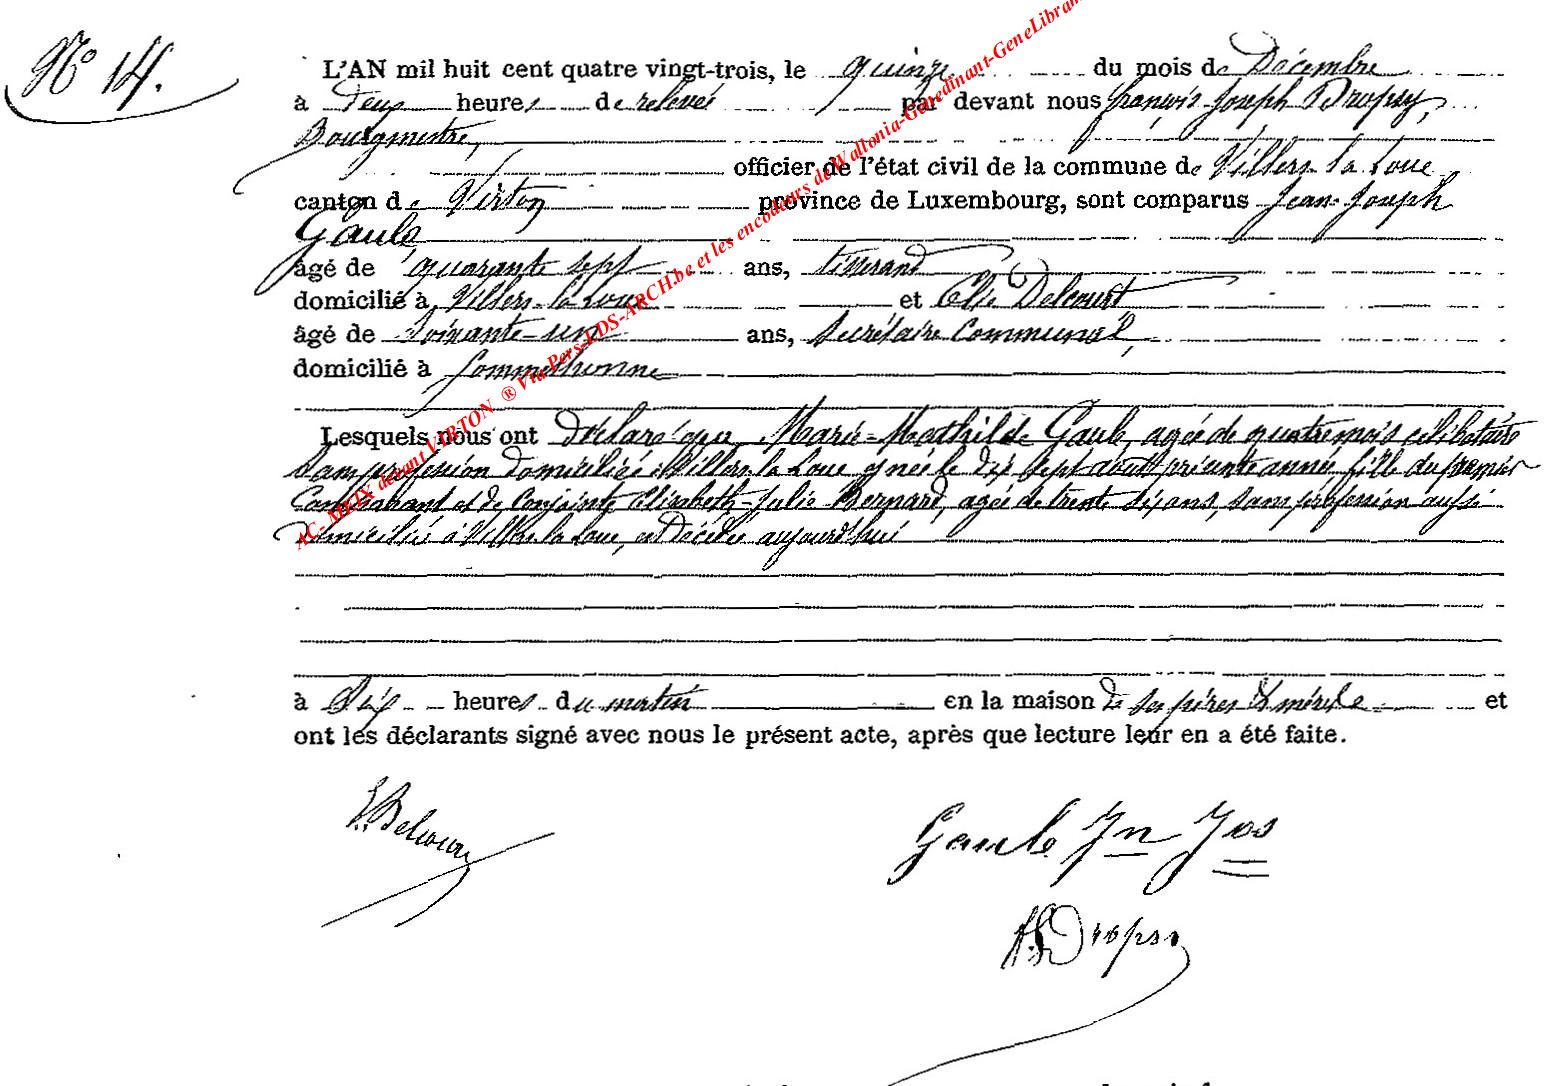 N° 14.
L'AN mil huit cent quatre vingt-trois, le quinze du mois de Décembre
à deux heures de relevée par devant nous françois Joseph Dropsy,
Bourgmestre,
officier de l'état civil de la commune de Villers la Loue
canton de Virton province de Luxembourg, sont comparus Jean-Joseph
Gaule
âgé de quarante sept ans, tisserand
domicilié à Villers-la-Loue et Elie Delcourt
âgé de soixante-un ans, Secrétaire Communal,
domicilié à Sommethonne
Lesquels nous ont déclaré que Marie-Mathilde Gaule, agée de quatre mois célibataire
sans profession domiciliée à Villers la Loue y née le dix sept août présente année fille du premier
Comparant et de Conjointe Elisabeth-Julie Bernard, agée de trente six ans, sans profession aussi
domiciliée à Villers la Loue, est Décédée aujourd'hui
à six heures du matin en la maison de ses pères & mère et
ont les déclarants signé avec nous le présent acte, après que lecture leur en a été faite.
E. Delcourt
Gaule Jn Jos
Dropsy
AC- MEIX devant VIRTON ® Via Pers-LDS-ARCH.be et les encodeurs de Wallonia-Genedinant-GeneLibran